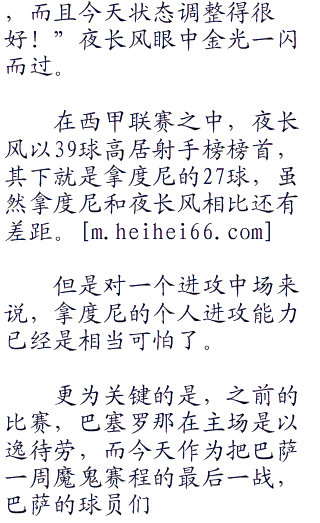 ，而且今天状态调整得很
好！”夜长风眼中金光一闪
而过。
在西甲联赛之中，夜长
风以39球高居射手榜榜首，
其下就是拿度尼的27球，虽
然拿度尼和夜长风相比还有
差距。[m.heihei66.com]
但是对一个进攻中场来
说，拿度尼的个人进攻能力
已经是相当可怕了。
更为关键的是，之前的
比赛，巴塞罗那在主场是以
逸待劳，而今天作为把巴萨
一周魔鬼赛程的最后一战，
巴萨的球员们